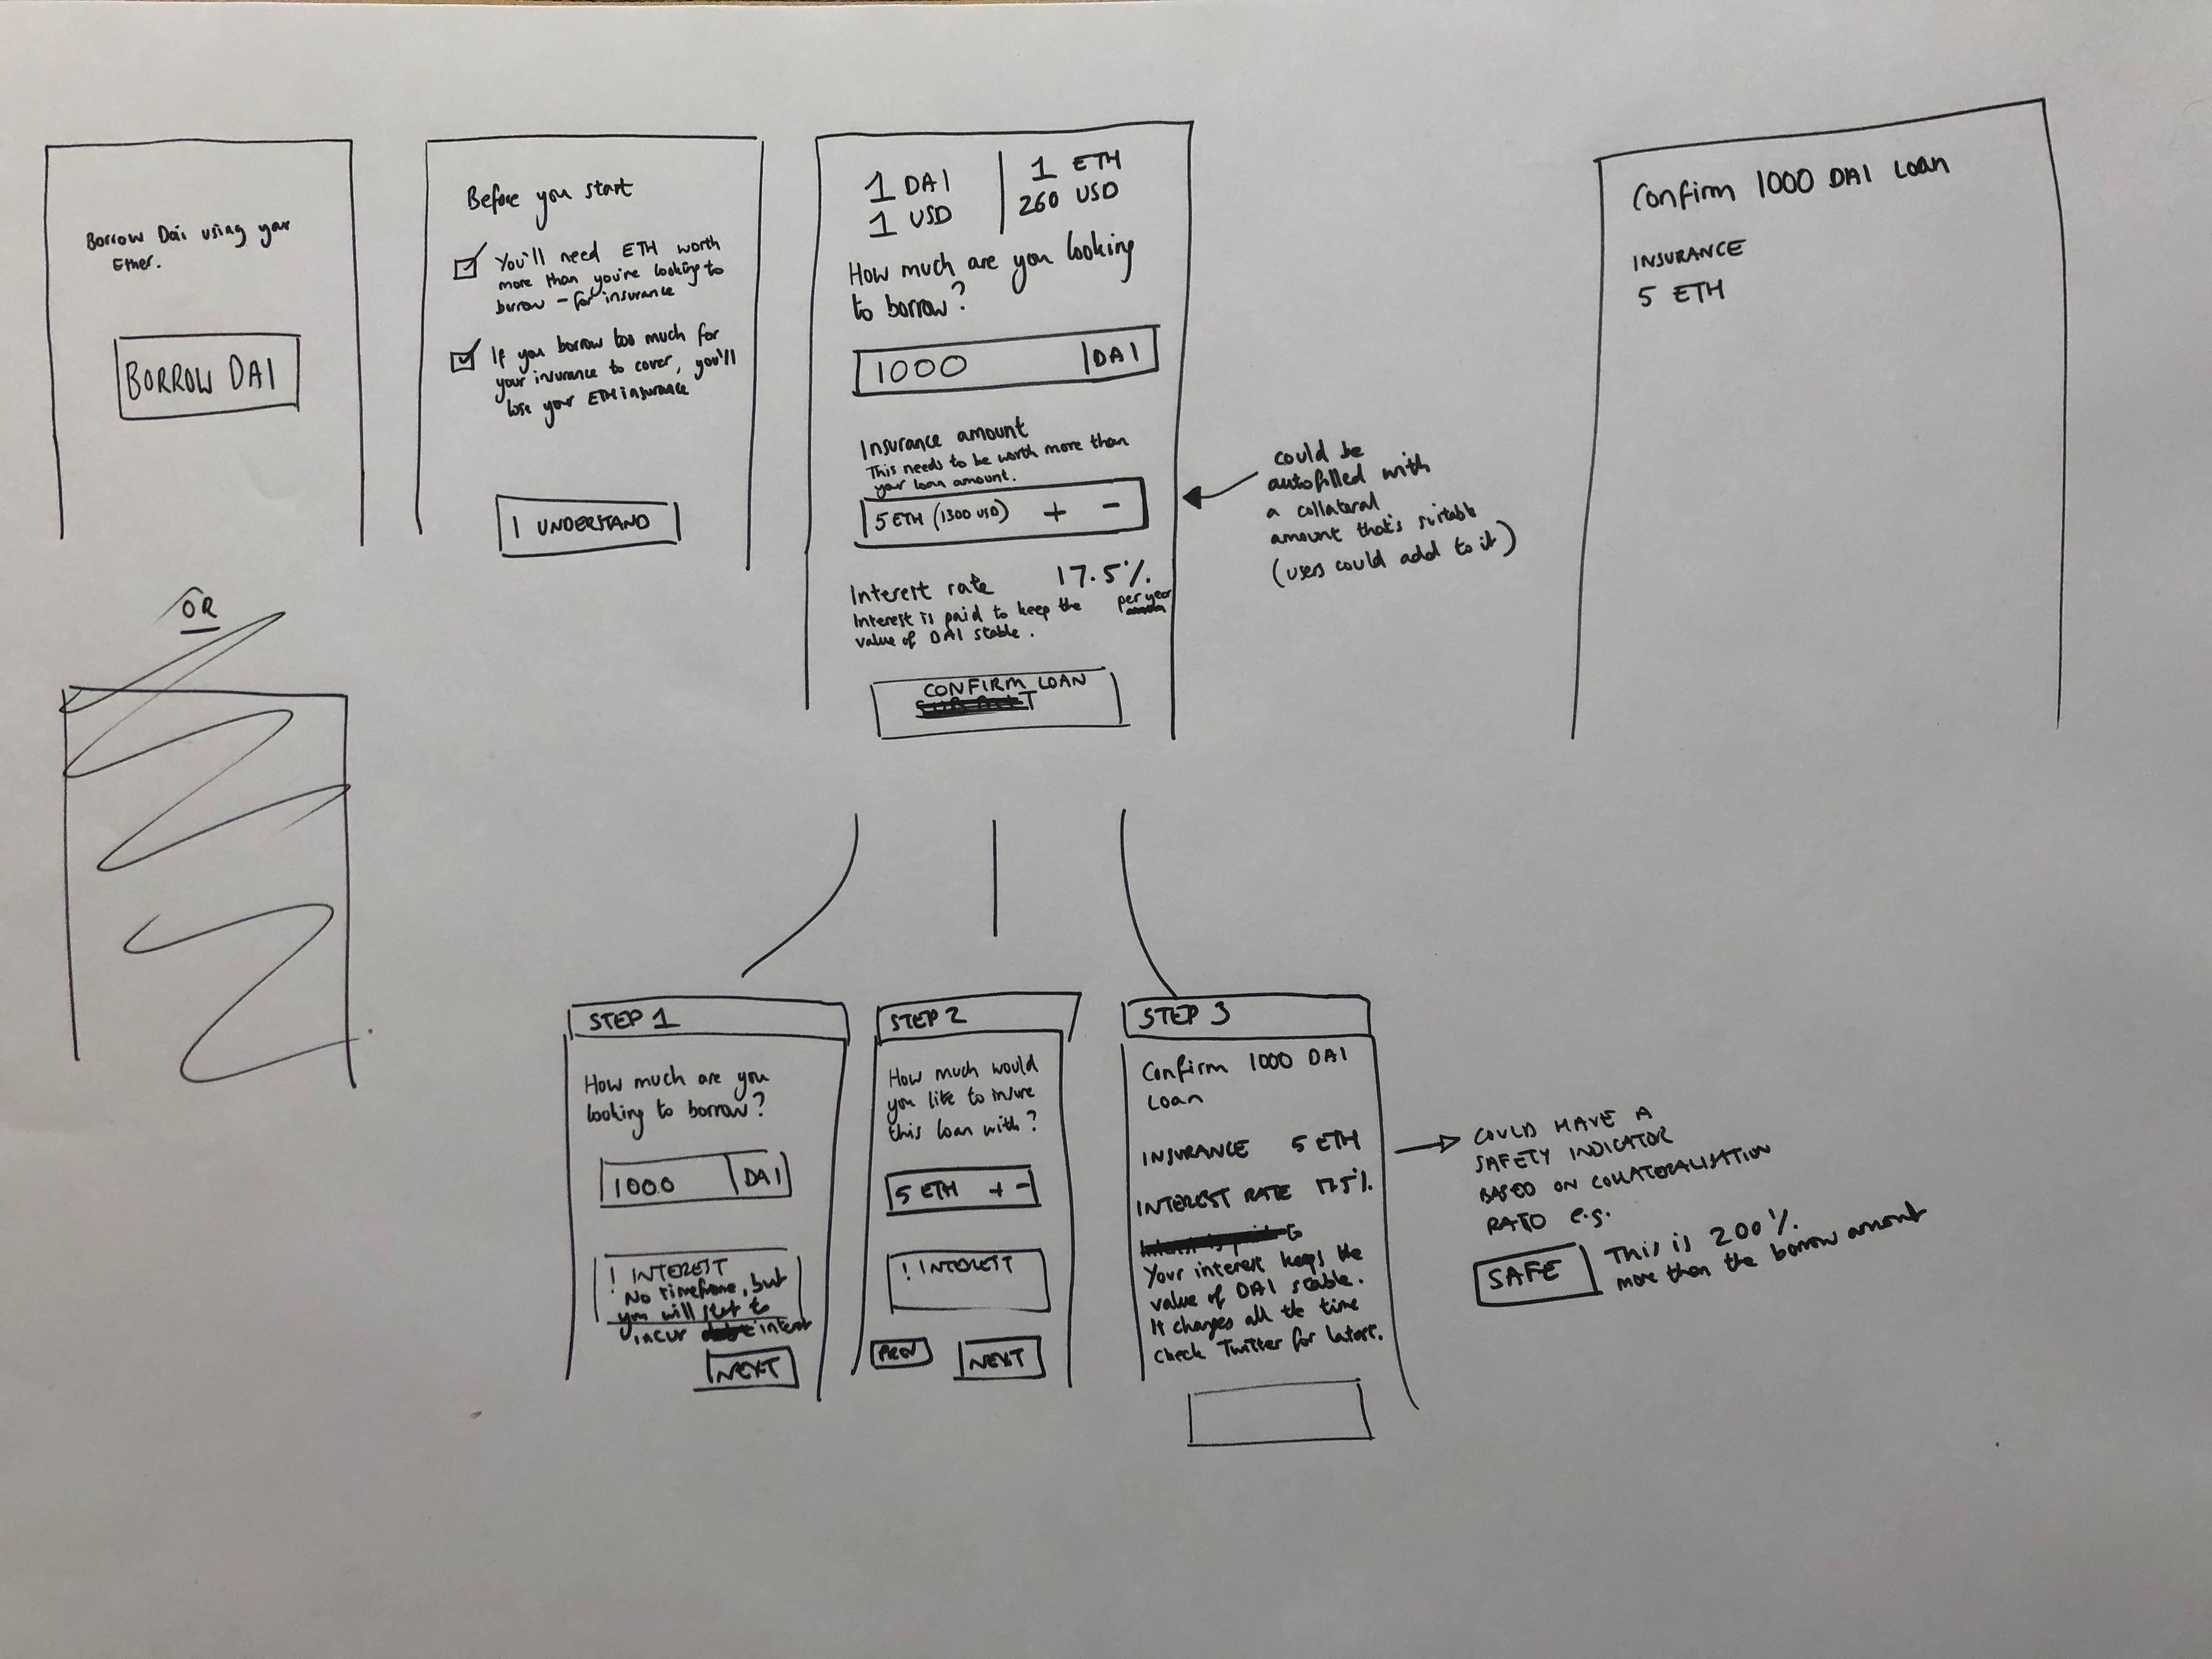 Borrow Dai using your
Ether.
BORROW DAI
Before you start
You'll need ETH worth
more than you're looking to
borrow - for insurance
If you borrow too much for
your insurance to cover, you'll
lose your ETH insurance
I UNDERSTAND
1 DAI
1 USD
1 ETH
260 USD
How much are you looking
to borrow?
1000 DAI
Insurance amount
This needs to be worth more than
your loan amount.
5 ETH (1300 USD) + -
Interest rate 17.5%
per year
Interest is paid to keep the
value of DAI stable.
CONFIRM LOAN
could be
autofilled with
a collateral
amount that's suitable
(users could add to it)
Confirm 1000 DAI Loan
INSURANCE
5 ETH
OR
STEP 1
How much are you
looking to borrow?
1000 DAI
! INTEREST
No timeframe, but
you will start to
incur interest
NEXT
STEP 2
How much would
you like to insure
this loan with?
5 ETH + -
! INTEREST
PREV
NEXT
STEP 3
Confirm 1000 DAI
Loan
INSURANCE 5 ETH
INTEREST RATE 17.5%
Your interest keeps the
value of DAI stable.
It changes all the time
check Twitter for latest.
COULD HAVE A
SAFETY INDICATOR
BASED ON COLLATERALISATION
RATIO e.g.
SAFE
This is 200%
more than the borrow amount